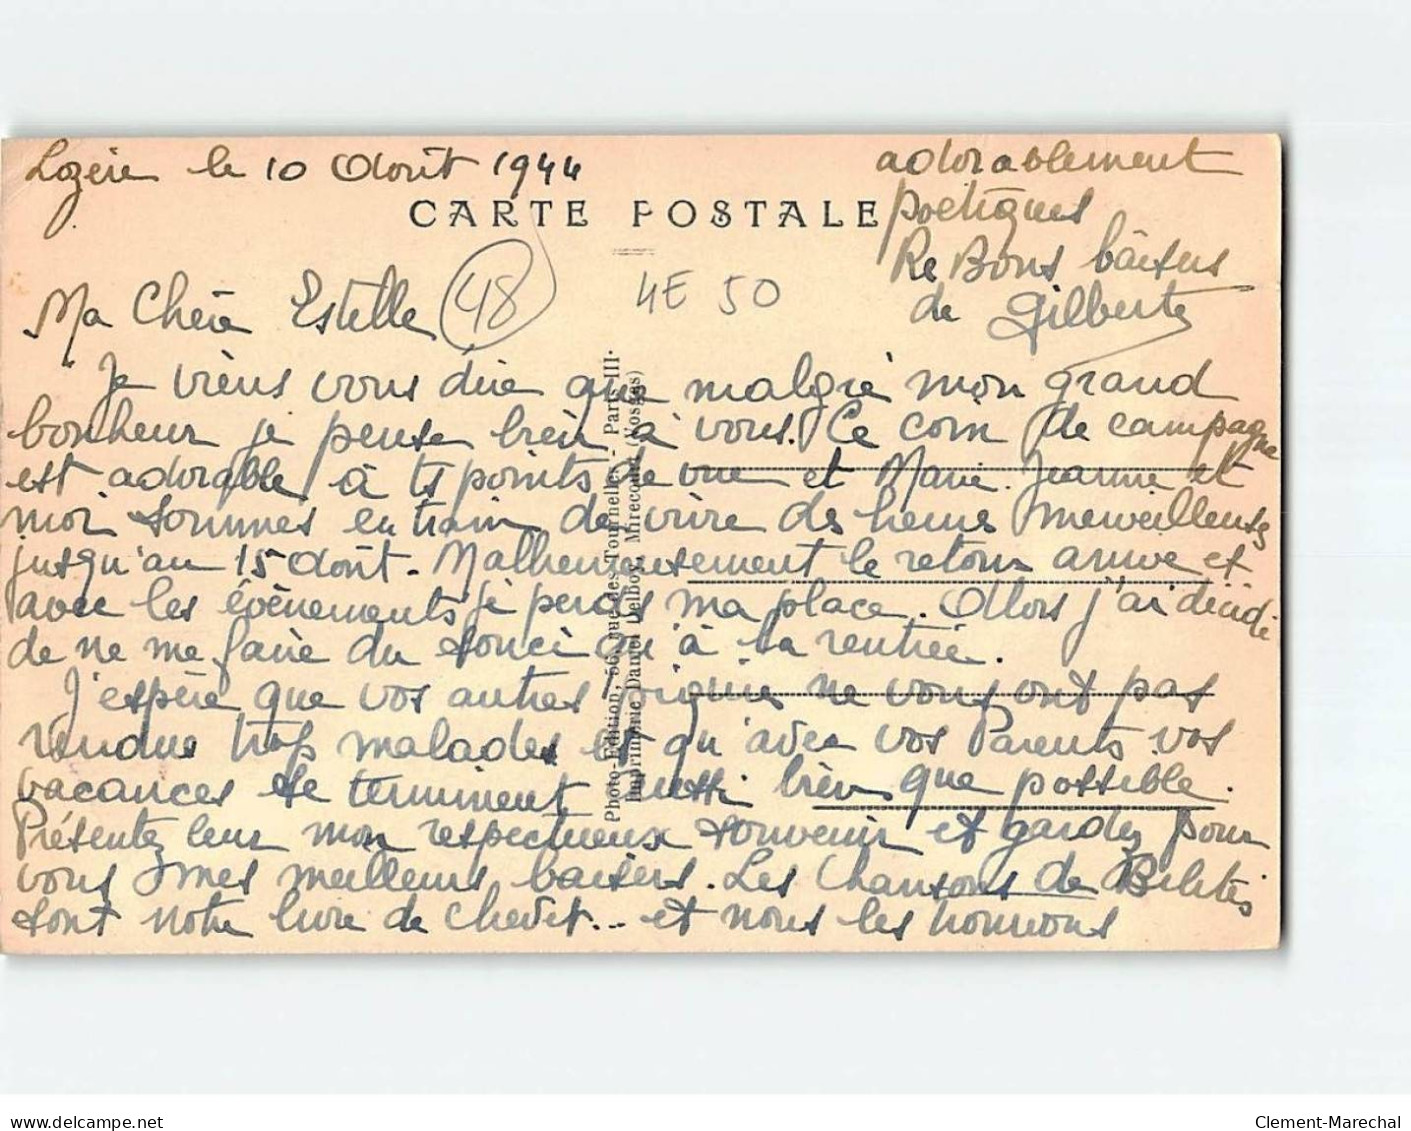 Lozère le 10 Août 1944
CARTE POSTALE
48
4E 50
Ma Chère Estelle
Je viens vous dire que malgré mon grand
bonheur je pense bien à vous. Ce coin de campagne
est adorable à ts points de vue et Marie-Jeanne et
moi sommes en train de vivre des heures merveilleuses
jusqu'au 15 Août. Malheureusement le retour arrive et
avec les évènements je perds ma place. Alors j'ai décidé
de ne me faire du souci qu'à la rentrée.
J'espère que vos autres ne vous ont pas
rendue trop malades et qu'avec vos Parents vos
vacances se terminent aussi bien que possible.
Présentez leur mon respectueux souvenir et gardez pour
vous mes meilleurs baisers. Les Chansons de Bilitis
sont notre livre de chevet... et nous les trouvons
adorablement
poétiques
Re Bons baisers
de Gilberte
Photo-Edition, 56, rue des Tournelles - Paris-III
Imprimerie Daniel Delboy, Mirecourt (Vosges)
Clement-Marechal
www.delcampe.net